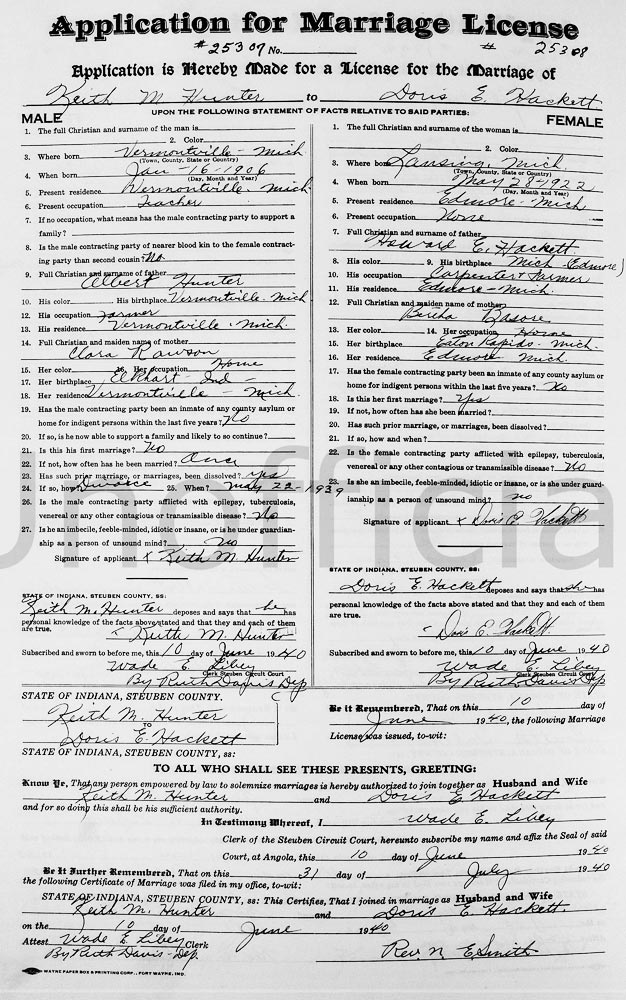 Application for Marriage License
# 25307 No. # 25308
Application is Hereby Made for a License for the Marriage of
Keith M Hunter to Doris E. Hackett
UPON THE FOLLOWING STATEMENT OF FACTS RELATIVE TO SAID PARTIES:
MALE
1. The full Christian and surname of the man is
2. Color
3. Where born Vermontville - Mich
(Town, County, State or Country)
4. When born Jan - 16 - 1906
(Day, Month and Year)
5. Present residence Vermontville - Mich
6. Present occupation Teacher
7. If no occupation, what means has the male contracting party to support a
family?
8. Is the male contracting party of nearer blood kin to the female contract-
ing party than second cousin? No
9. Full Christian and surname of father
Albert Hunter
10. His color His birthplace Vermontville - Mich
12. His occupation Farmer
13. His residence Vermontville - Mich.
14. Full Christian and maiden name of mother
Clara Rawson
15. Her color 16. Her occupation Home
17. Her birthplace Elkhart - Ind -
18. Her residence Vermontville - Mich.
19. Has the male contracting party been an inmate of any county asylum or
home for indigent persons within the last five years? No
20. If so, is he now able to support a family and likely to so continue?
21. Is this his first marriage? No
22. If not, how often has he been married? Once
23. Has such prior marriage, or marriages, been dissolved? yes
24. If so, how? Divorce 25. When? May 22 - 1939
26. Is the male contracting party afflicted with epilepsy, tuberculosis,
venereal or any other contagious or transmissible disease? No
27. Is he an imbecile, feeble-minded, idiotic or insane, or is he under guardian-
ship as a person of unsound mind? no
Signature of applicant x Keith M Hunter
STATE OF INDIANA, STEUBEN COUNTY, ss:
Keith M. Hunter deposes and says that he has
personal knowledge of the facts above stated and that they and each of them
are true.
x Keith M. Hunter
Subscribed and sworn to before me, this 10 day of June 1940
Wade E. Libey
Clerk Steuben Circuit Court
By Ruth Davis Dep
FEMALE
1. The full Christian and surname of the woman is
2. Color
3. Where born Lansing, Mich
(Town, County, State or Country)
4. When born May 28 - 1922
(Day, Month and Year)
5. Present residence Edmore - Mich
6. Present occupation None
7. Full Christian and surname of father
Howard E. Hackett
8. His color 9. His birthplace Mich (Edmore)
10. His occupation Carpenter + Farmer
11. His residence Edmore - Mich.
12. Full Christian and maiden name of mother
Bertha Basore
13. Her color 14. Her occupation Home
15. Her birthplace Eaton Rapids - Mich.
16. Her residence Edmore Mich.
17. Has the female contracting party been an inmate of any county asylum or
home for indigent persons within the last five years? No
18. Is this her first marriage? Yes
19. If not, how often has she been married?
20. Has such prior marriage, or marriages, been dissolved?
21. If so, how and when?
22. Is the female contracting party afflicted with epilepsy, tuberculosis,
venereal or any other contagious or transmissible disease? No
23. Is she an imbecile, feeble-minded, idiotic or insane, or is she under guard-
ianship as a person of unsound mind? no
Signature of applicant x Doris E. Hackett
STATE OF INDIANA, STEUBEN COUNTY, ss:
Doris E. Hackett deposes and says that she has
personal knowledge of the facts above stated and that they and each of them
are true.
x Doris E. Hackett.
Subscribed and sworn to before me, this 10 day of June 1940
Wade E. Libey
Clerk Steuben Circuit Court
By Ruth Davis Dep
STATE OF INDIANA, STEUBEN COUNTY.
Keith M. Hunter
TO
Doris E. Hackett
STATE OF INDIANA, STEUBEN COUNTY, ss:
Be it Remembered, That on this 10 day of
June 1940, the following Marriage
License was issued, to-wit:
TO ALL WHO SHALL SEE THESE PRESENTS, GREETING:
Know Ye, That any person empowered by law to solemnize marriages is hereby authorized to join together as Husband and Wife
Keith M. Hunter and Doris E Hackett
and for so doing this shall be his sufficient authority.
In Testimony Whereof, I Wade E. Libey
Clerk of the Steuben Circuit Court, hereunto subscribe my name and affix the Seal of said
Court, at Angola, this 10 day of June 1940
Be It Further Remembered, That on this 31 day of July 1940
the following Certificate of Marriage was filed in my office, to-wit:
STATE OF INDIANA, STEUBEN COUNTY, ss: This Certifies, That I joined in marriage as Husband and Wife
Keith M. Hunter and Doris E. Hackett.
on the 10 day of June 1940
Attest Wade E Libey Clerk
By Ruth Davis - Dep. Rev. N E Smith
WAYNE PAPER BOX & PRINTING CORP., FORT WAYNE, IND.